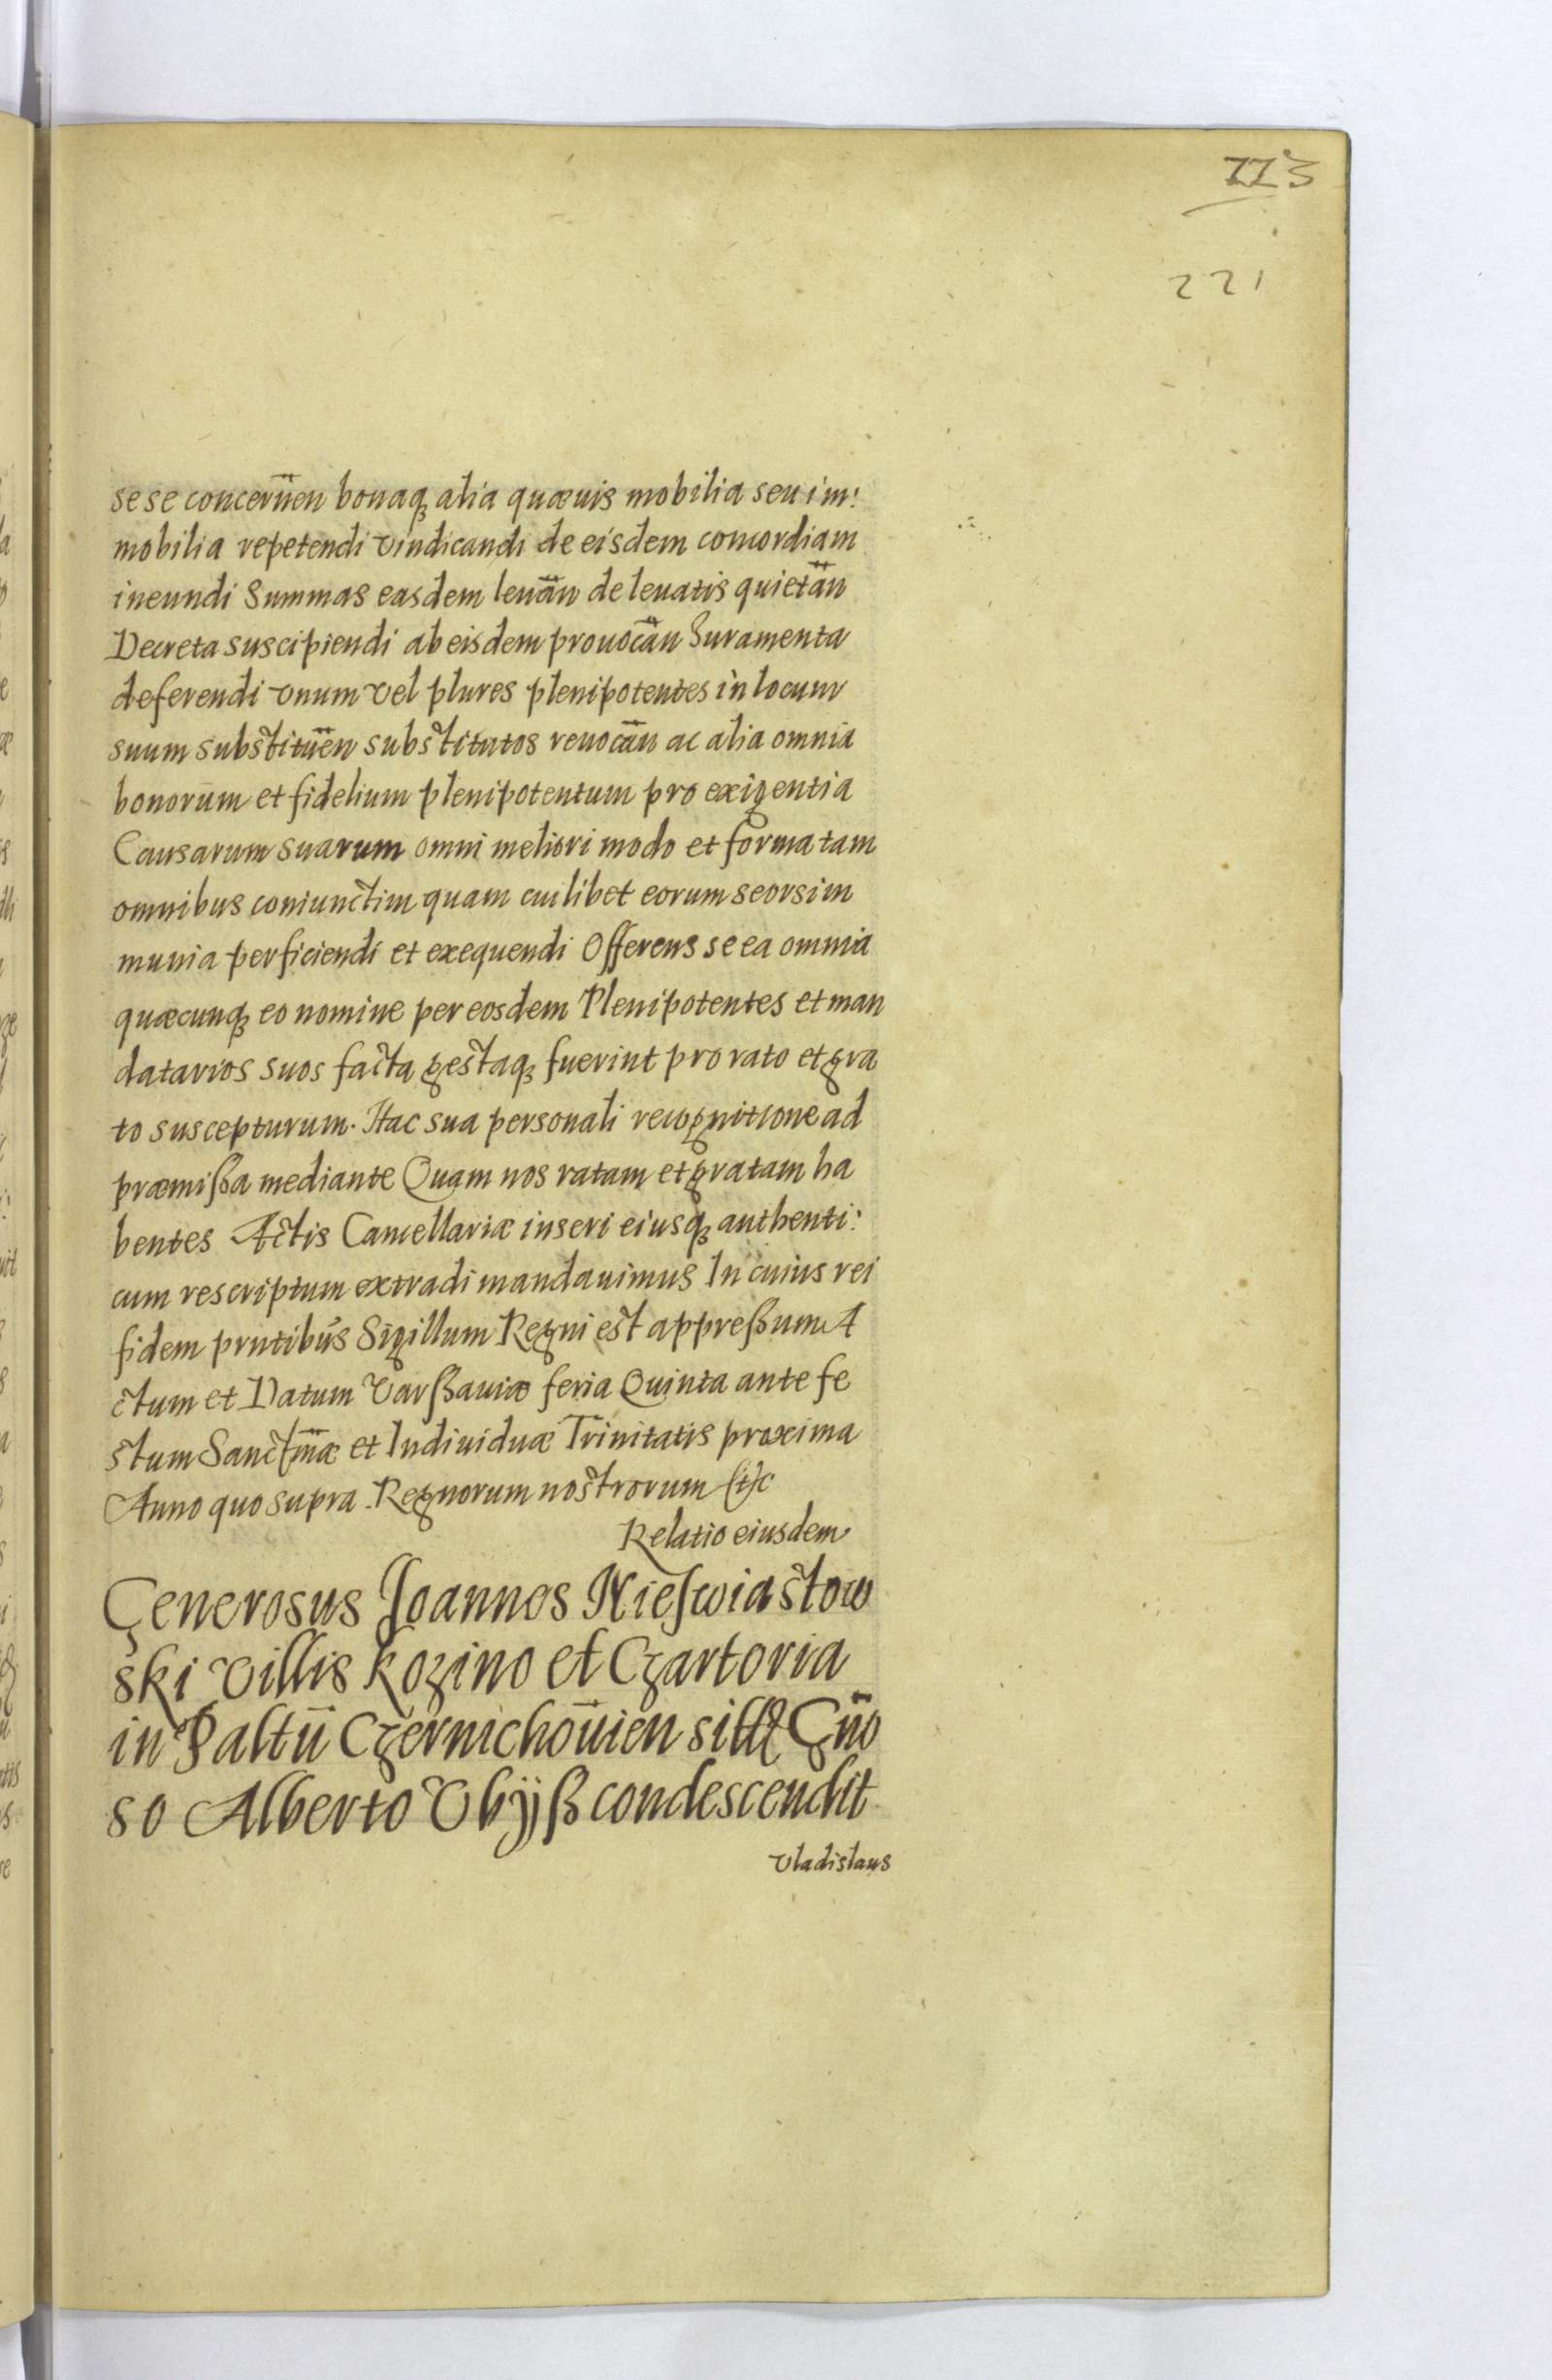 113
221
sese concern̄en bonaq₃ alia quæuis mobilia seu im:
mobilia repetendi vindicandi de eisdem concordiam
ineundi Summas easdem leuān de leuatis quietān
Decreta suscipiendi ab eisdem prouocān Iuramenta
deferendi vnum vel plures plenipotentes in locum
suum substituēn substitutos reuocān ac alia omnia
bonorum et fidelium plenipotentum pro exigentia
Causarum suarum omni meliori modo et forma tam
omnibus coniunctim quam cuilibet eorum seorsim
munia perficiendi et exequendi Offerens se ea omnia
quæcunq₃ eo nomine per eosdem Plenipotentes et man
datarios suos facta gestaq₃ fuerint pro rato et gra
to suscepturum. Hac sua personali recognitione ad
præmißa mediante Quam nos ratam et gratam ha
bentes Actis Cancellariæ inseri eiusq₃ authenti:
cum rescriptum extradi mandauimus In cuius rei
fidem prntibus Sigillum Regni est appreßum A
ctum et Datum Varßauiæ feria Quinta ante fe
stum Sanctm̄æ et Indiuiduæ Trinitatis proxima
Anno quo supra. Regnorum nostrorum etc
Relatio eiusdem
Generosus Joannes Nieſwiastow
ski Villis Kozino et Czartoria
in Paltū Czernichoūien sitt Gn̄o
so Alberto Vbÿß condescendit
Vladislaus